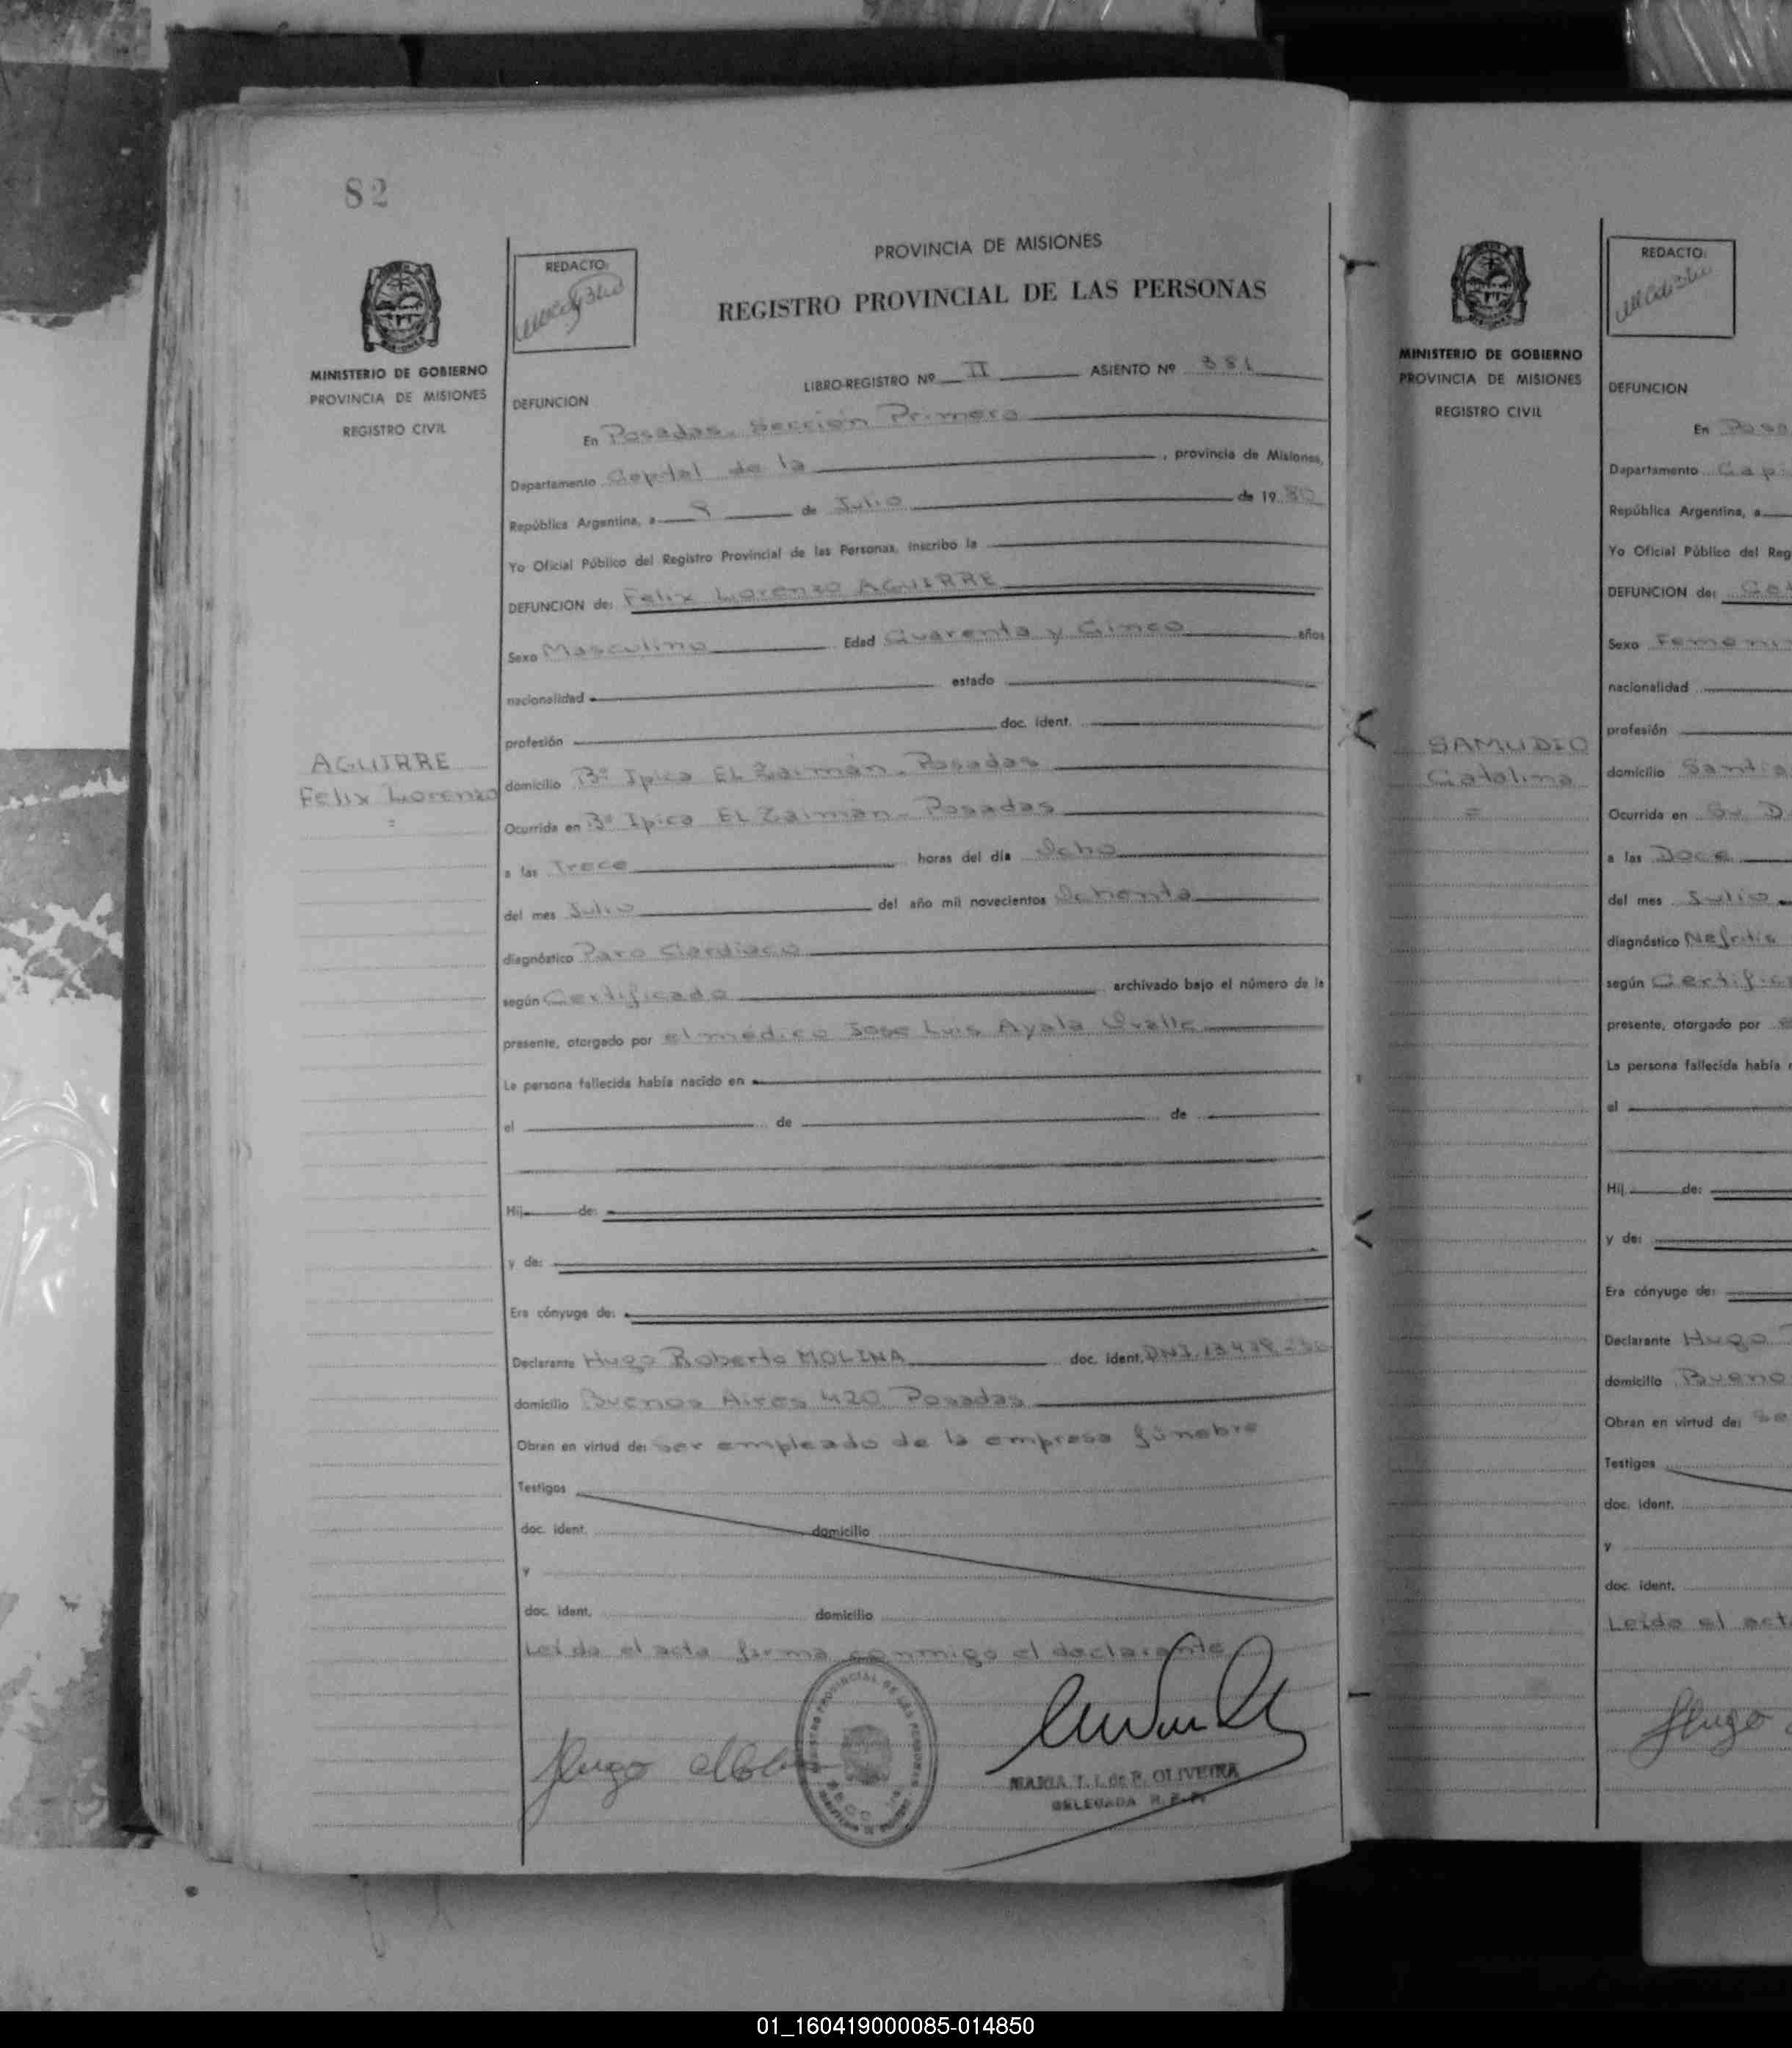 82
MINISTERIO DE GOBIERNO
PROVINCIA DE MISIONES
REGISTRO CIVIL
REDACTO:
PROVINCIA DE MISIONES
REGISTRO PROVINCIAL DE LAS PERSONAS
LIBRO-REGISTRO Nº II ASIENTO Nº 381
DEFUNCION
En Posadas. Sección Primera
Departamento Capital de la , provincia de Misiones,
República Argentina, a 9 de Julio de 19 80
Yo Oficial Público del Registro Provincial de las Personas, inscribo la
DEFUNCION de: Felix Lorenzo AGUIRRE
Sexo Masculino Edad Cuarenta y Cinco años
nacionalidad estado
profesión doc. ident.
AGUIRRE
Felix Lorenzo
=
domicilio Bº Ipica EL Zaimán. Posadas
Ocurrida en Bº Ipica EL Zaimán. Posadas
a las Trece horas del día Ocho
del mes Julio del año mil novecientos Ochenta
diagnóstico Paro Cardiaco
según Certificado archivado bajo el número de la
presente, otorgado por el médico Jose Luis Ayala Ovalle
La persona fallecida había nacido en
el de de
Hij de:
y de:
Era cónyuge de:
Declarante Hugo Roberto MOLINA doc. ident. DNI.
domicilio Buenos Aires 420 Posadas
Obran en virtud de: ser empleado de la empresa fúnebre
Testigos
doc. ident. domicilio
y
doc. ident. domicilio
Leída el acta firma conmigo el declarante
Hugo Molina
REGISTRO PROVINCIAL DE LAS PERSONAS
MARIA T. I. de P. OLIVEIRA
DELEGADA R. P. P.
MINISTERIO DE GOBIERNO
PROVINCIA DE MISIONES
REGISTRO CIVIL
SAMUDIO
Catalina
=
REDACTO:
DEFUNCION
En Posa
Departamento Capi
República Argentina, a
Yo Oficial Público del Reg
DEFUNCION de: Cat
Sexo Femeni
nacionalidad
profesión
domicilio Santia
Ocurrida en Su D
a las Doce
del mes Julio
diagnóstico Nefritis
según Certific
presente, otorgado por e
La persona fallecida había
el
Hij de:
y de:
Era cónyuge de:
Declarante Hugo
domicilio Bueno
Obran en virtud de: se
Testigos
doc. ident.
y
doc. ident.
Leída el act
Hugo
01_160419000085-014850